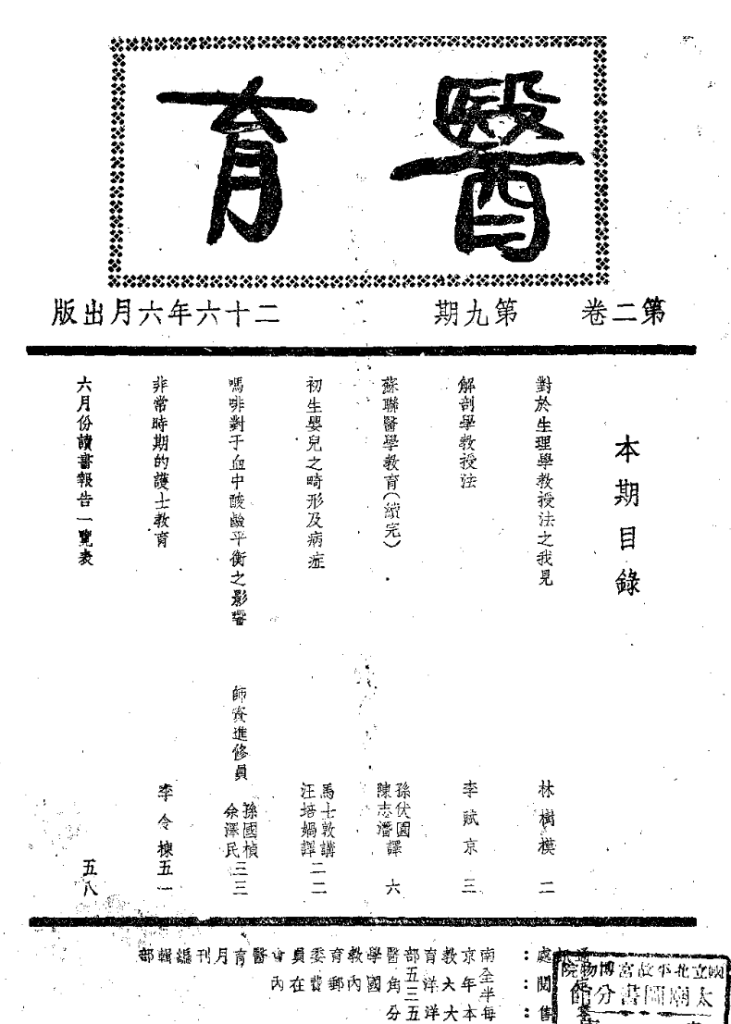 醫育
第二卷 第九期 二十六年六月出版
本期目錄
對於生理學教授法之我見 林樹模 二
解剖學教授法 李賦京 三
蘇聯醫學教育(續完) 孫伏園 陳志潛譯 六
初生嬰兒之畸形及病症 馬士敦講 汪培媧譯 二二
嗎啡對于血中酸鹼平衡之影響 師資進修員 孫國楨 余澤民 三三
非常時期的護士教育 李令棟 五一
六月份讀書報告一覽表 五八
南京教育部醫學教育委員會醫育月刊編輯部
全年大洋五角國內郵費在內
國立北平故宮博物院
太廟圖書分館